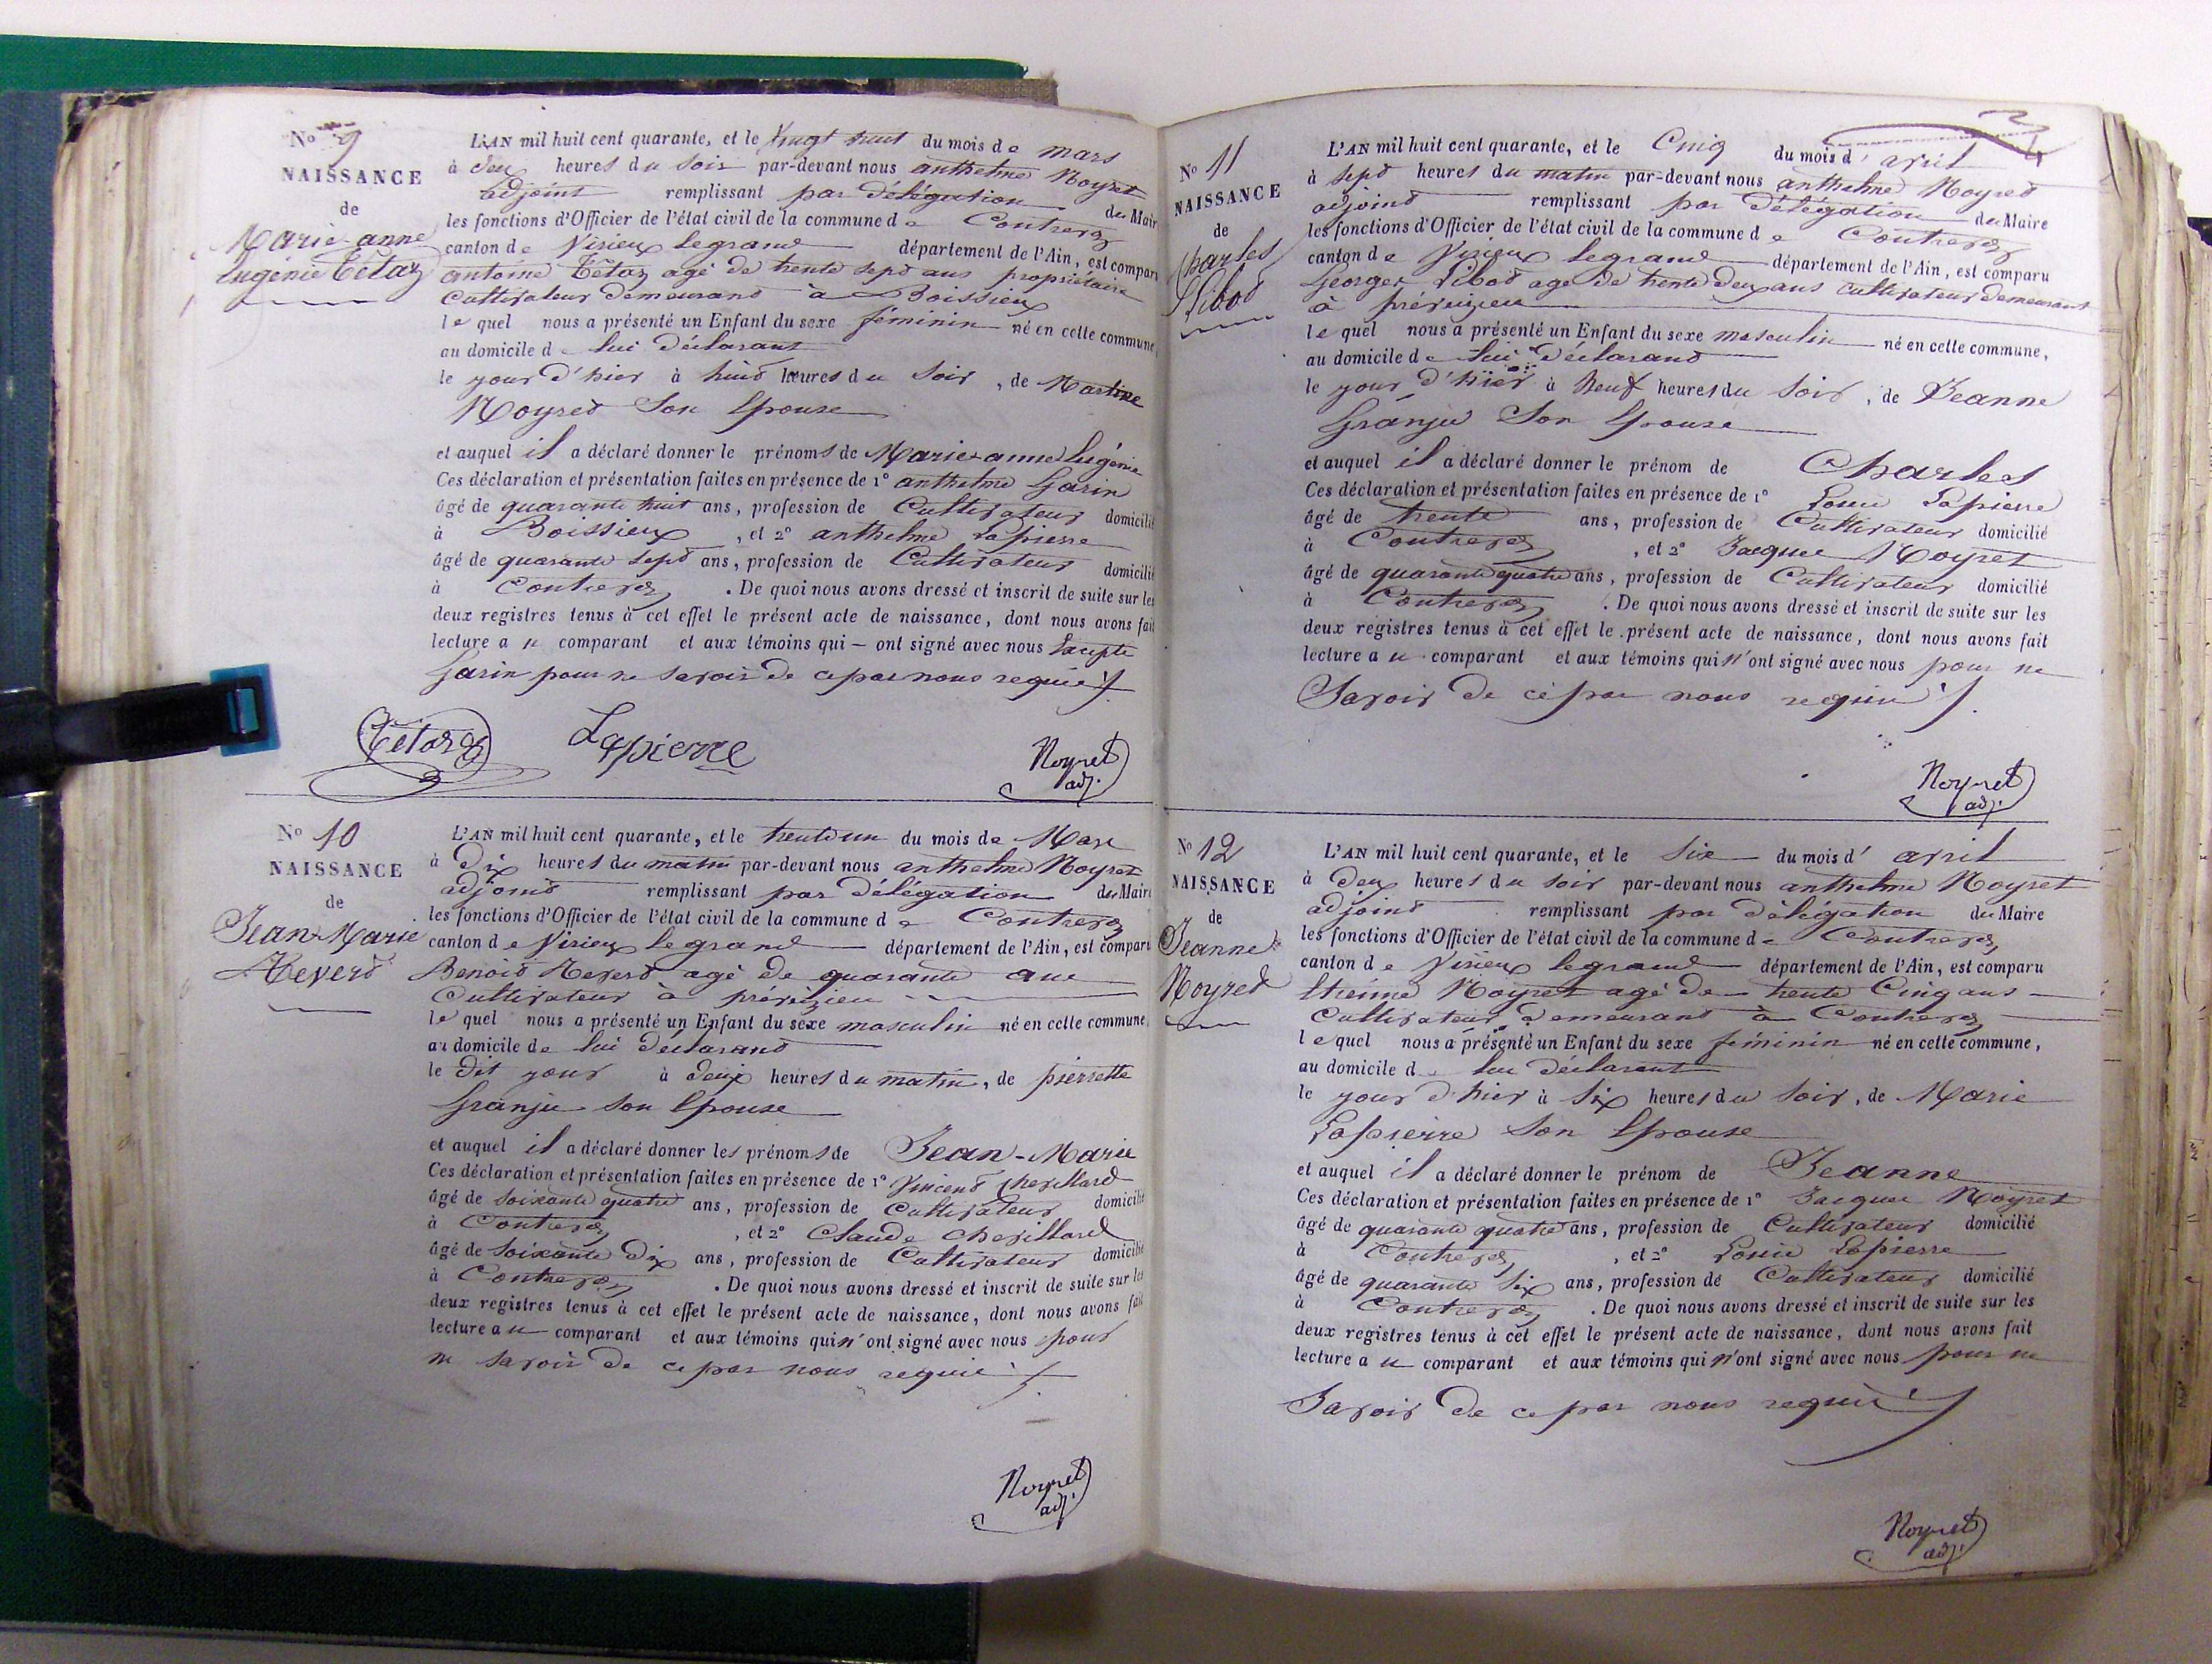 No 9
NAISSANCE
de
Marie anne
Eugénie Tétaz
L'AN mil huit cent quarante, et le Vingt huit du mois de mars
à deux heures du soir par-devant nous anthelme Noyret
adjoint remplissant par délégation du Maire
les fonctions d'Officier de l'état civil de la commune de Contrevoz
canton de Virieux legrand département de l'Ain, est comparu
antoine Tétaz agé de trente sept ans propriétaire
Cultivateur demeurant à Boissieux
lequel nous a présenté un Enfant du sexe féminin né en cette commune,
au domicile de lui déclarant
le jour d'hier à huit heures du soir, de Martine
Noyret Son Epouse
et auquel il a déclaré donner le prénoms de Marie anne Eugénie
Ces déclaration et présentation faites en présence de 1° anthelme Garin
âgé de quarante huit ans, profession de Cultivateur domicilié
à Boissieux, et 2° anthelme Lapierre
âgé de quarante sept ans, profession de Cultivateur domicilié
à Contrevoz. De quoi nous avons dressé et inscrit de suite sur les
deux registres tenus à cet effet le présent acte de naissance, dont nous avons fait
lecture au comparant et aux témoins qui – ont signé avec nous Excepté
Garin pour ne savoir de ce par nous requis
Tétaz Lapierre Noyret adj.
No 10
NAISSANCE
de
Jean-Marie
Revert
L'AN mil huit cent quarante, et le trente un du mois de Mars
à Dix heures du matin par-devant nous anthelme Noyret
adjoint remplissant par délégation du Maire
les fonctions d'Officier de l'état civil de la commune de Contrevoz
canton de Virieux legrand département de l'Ain, est comparu
Benoit Revert agé de quarante ans
Cultivateur à préveizieu
lequel nous a présenté un Enfant du sexe masculin né en cette commune,
au domicile de lui déclarant
le dit jour à deux heures du matin, de pierrette
Granju son Epouse
et auquel il a déclaré donner les prénoms de Jean-Marie
Ces déclaration et présentation faites en présence de 1° Vincent Chevillard
âgé de soixante quatre ans, profession de Cultivateur domicilié
à Contrevoz, et 2° Claude Chevillard
âgé de soixante Dix ans, profession de Cultivateur domicilié
à Contrevoz. De quoi nous avons dressé et inscrit de suite sur les
deux registres tenus à cet effet le présent acte de naissance, dont nous avons fait
lecture au comparant et aux témoins qui n'ont signé avec nous pour
ne savoir de ce par nous requis
Noyret adj.
No 11
NAISSANCE
de
Charles
L'AN mil huit cent quarante, et le Cinq du mois d'avril
à sept heures du matin par-devant nous anthelme Noyret
adjoint remplissant par Délégation du Maire
les fonctions d'Officier de l'état civil de la commune de Contrevoz
canton de Virieux legrand département de l'Ain, est comparu
George agé de trente deux ans Cultivateur demeurant
à préveizieu
lequel nous a présenté un Enfant du sexe masculin né en cette commune,
au domicile de lui déclarant
le jour d'hier à Neuf heures du soir, de Jeanne
Granju Son Epouse
et auquel il a déclaré donner le prénom de Charles
Ces déclaration et présentation faites en présence de 1° Louis Lapierre
âgé de trente ans, profession de Cultivateur domicilié
à Contrevoz, et 2° Jacques Noyret
âgé de quarante quatre ans, profession de Cultivateur domicilié
à Contrevoz. De quoi nous avons dressé et inscrit de suite sur les
deux registres tenus à cet effet le présent acte de naissance, dont nous avons fait
lecture au comparant et aux témoins qui n'ont signé avec nous pour ne
Savoir de ce par nous requis
Noyret adj.
No 12
NAISSANCE
de
Jeanne
Noyret
L'AN mil huit cent quarante, et le six du mois d'avril
à deux heures du soir par-devant nous anthelme Noyret
adjoint remplissant par délégation du Maire
les fonctions d'Officier de l'état civil de la commune de Contrevoz
canton de Virieux legrand département de l'Ain, est comparu
Etienne Noyret agé de trente Cinq ans
Cultivateur demeurant à Contrevoz
lequel nous a présenté un Enfant du sexe féminin né en cette commune,
au domicile de lui déclarant
le jour d'hier à six heures du soir, de Marie
Lapierre Son Epouse
et auquel il a déclaré donner le prénom de Jeanne
Ces déclaration et présentation faites en présence de 1° Jacques Noyret
âgé de quarante quatre ans, profession de Cultivateur domicilié
à Contrevoz, et 2° Louis Lapierre
âgé de quarante six ans, profession de Cultivateur domicilié
à Contrevoz. De quoi nous avons dressé et inscrit de suite sur les
deux registres tenus à cet effet le présent acte de naissance, dont nous avons fait
lecture au comparant et aux témoins qui n'ont signé avec nous pour ne
Savoir de ce par nous requis
Noyret adj.